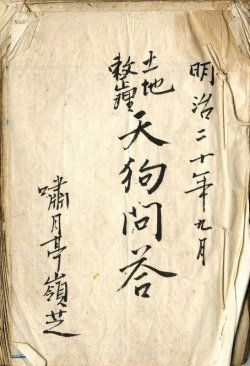 明治二十年九月
土地
整理
天狗問答
嘯月亭嶺芝